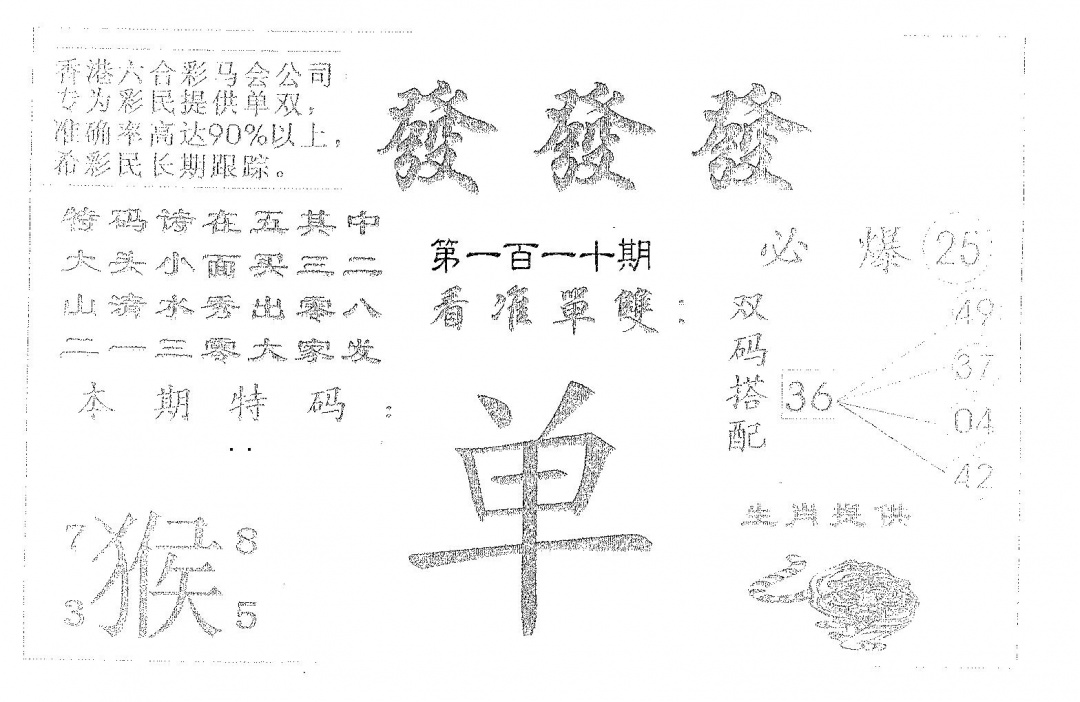 香港六合彩马会公司
专为彩民提供单双，
准确率高达90%以上，
希彩民长期跟踪。
發 發 發
特码请在五其中
大头小面买三二
山清水秀出零八
二一三零大家发
本期特码：
第一百一十期
看准單雙：
单
必爆 25
双码搭配
36
49
37
04
42
生肖提供
7 8
猴
3 5